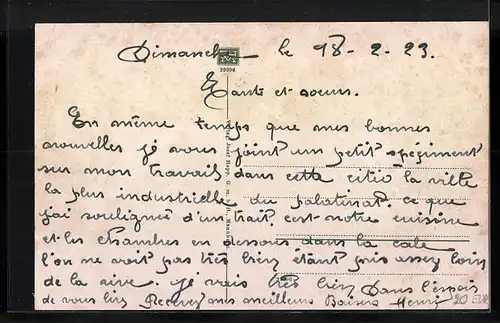 Dimanche le 18-2-23.
Tante et soeurs.
En même temps que mes bonnes
nouvelles je vous joint un petit spéciment
sur mon travail dans cette citée la ville
la plus industrielle du palatinat. ce que
j'ai soulignée d'un trait c'est notre cuisine
et les chambres en dessous dans la cale
l'on ne voit pas très bien étant pris assez loin
de la rive. je vais très bien Dans l'espoir
de vous lire Recevez mes meilleurs Baisers Henri
29296
20 EUR